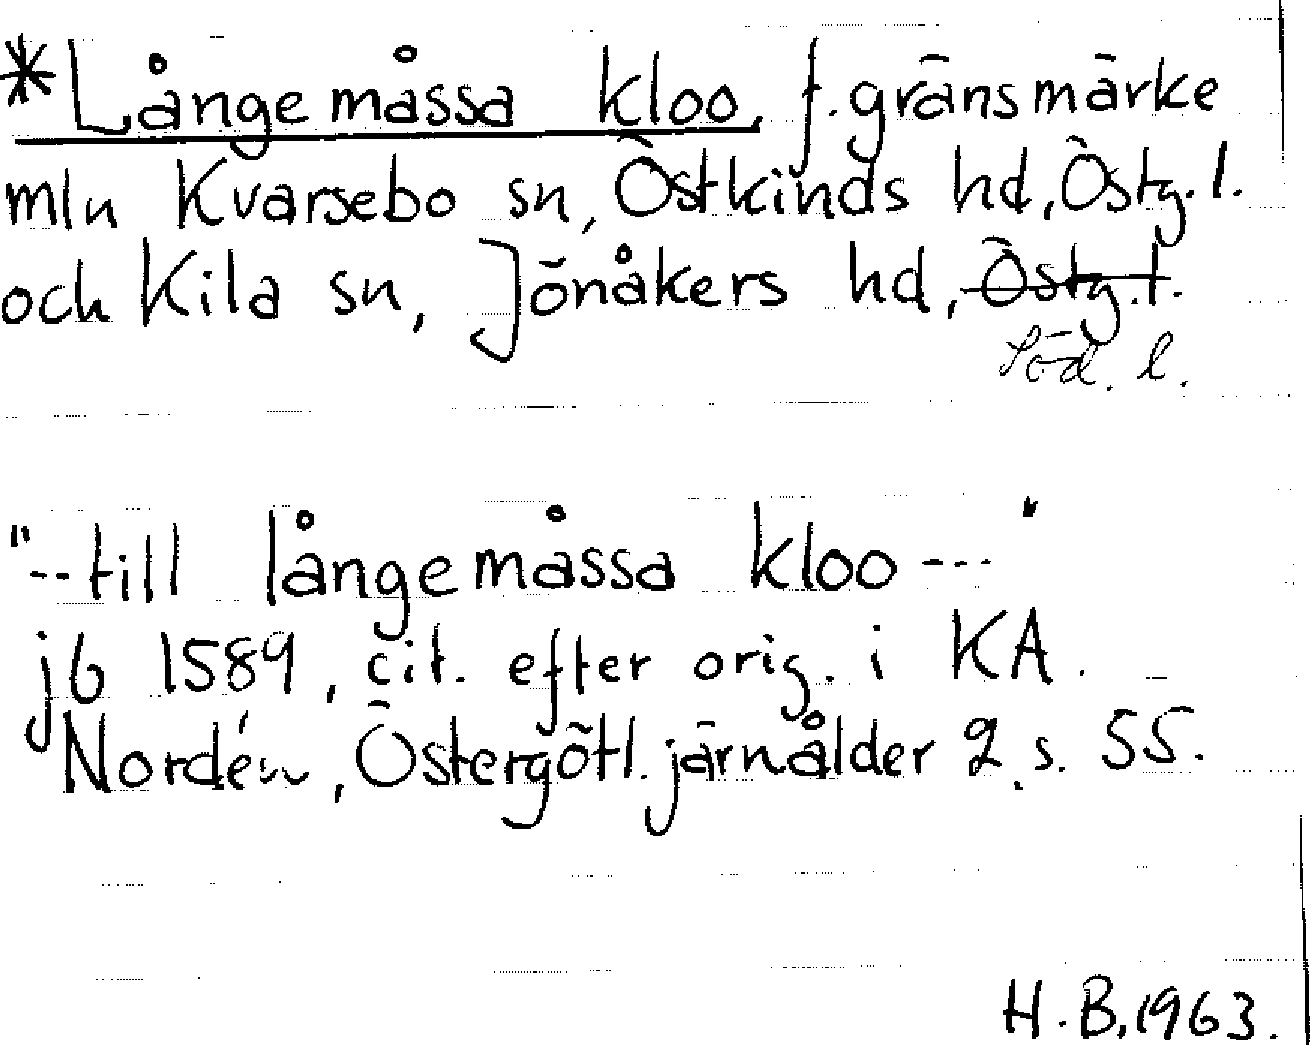 *Långe måssa kloo, f. gränsmärke
mln Kvarsebo sn, Östkinds hd, Östg. l.
och Kila sn, Jönåkers hd, Östg. l.
Söd. l.
"-- till långe måssa kloo ---"
jb 1589, cit. efter orig. i KA.
Nordén, Östergötl. järnålder 2, s. 55.
H. B, 1963.